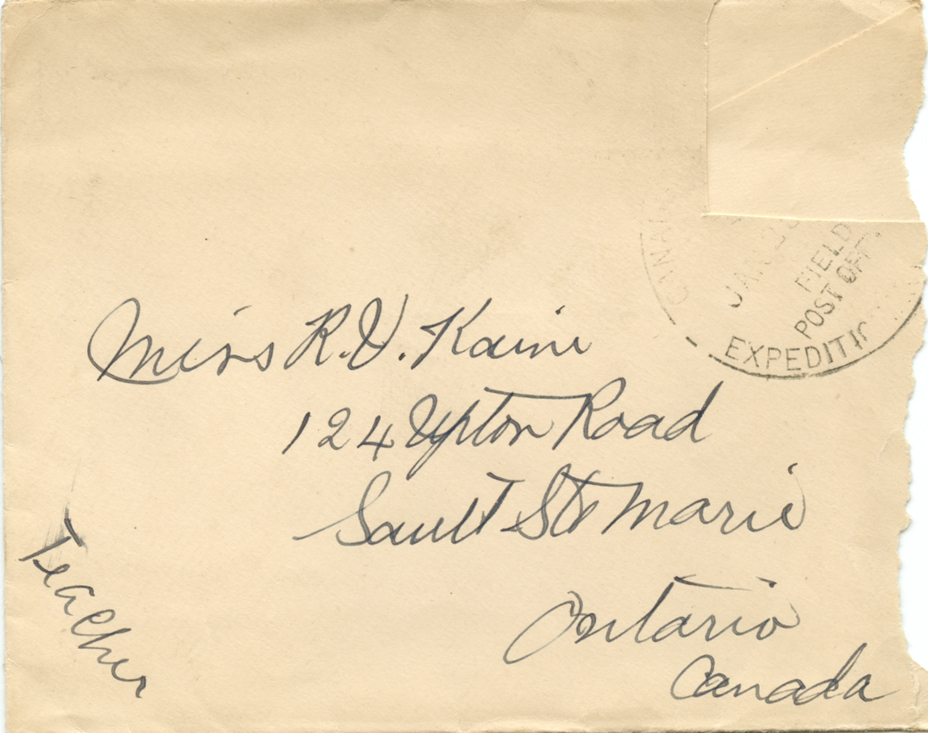 FIELD
POST OFF
EXPEDITI
Miss R.V. Kaine
124 Upton Road
Sault Ste Marie
Ontario
Canada
Teacher